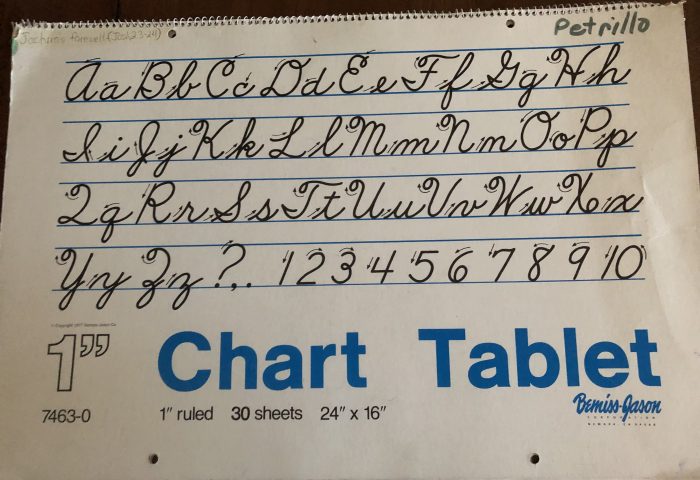 Joshua's farewell (Josh 23-24)
Petrillo
Aa Bb Cc Dd Ee Ff Gg Hh
Ii Jj Kk Ll Mm Nn Oo Pp
Qq Rr Ss Tt Uu Vv Ww Xx
Yy Zz ? , . 1 2 3 4 5 6 7 8 9 10
1" Chart Tablet
7463-0 1" ruled 30 sheets 24" x 16"
Bemiss-Jason
CORPORATION